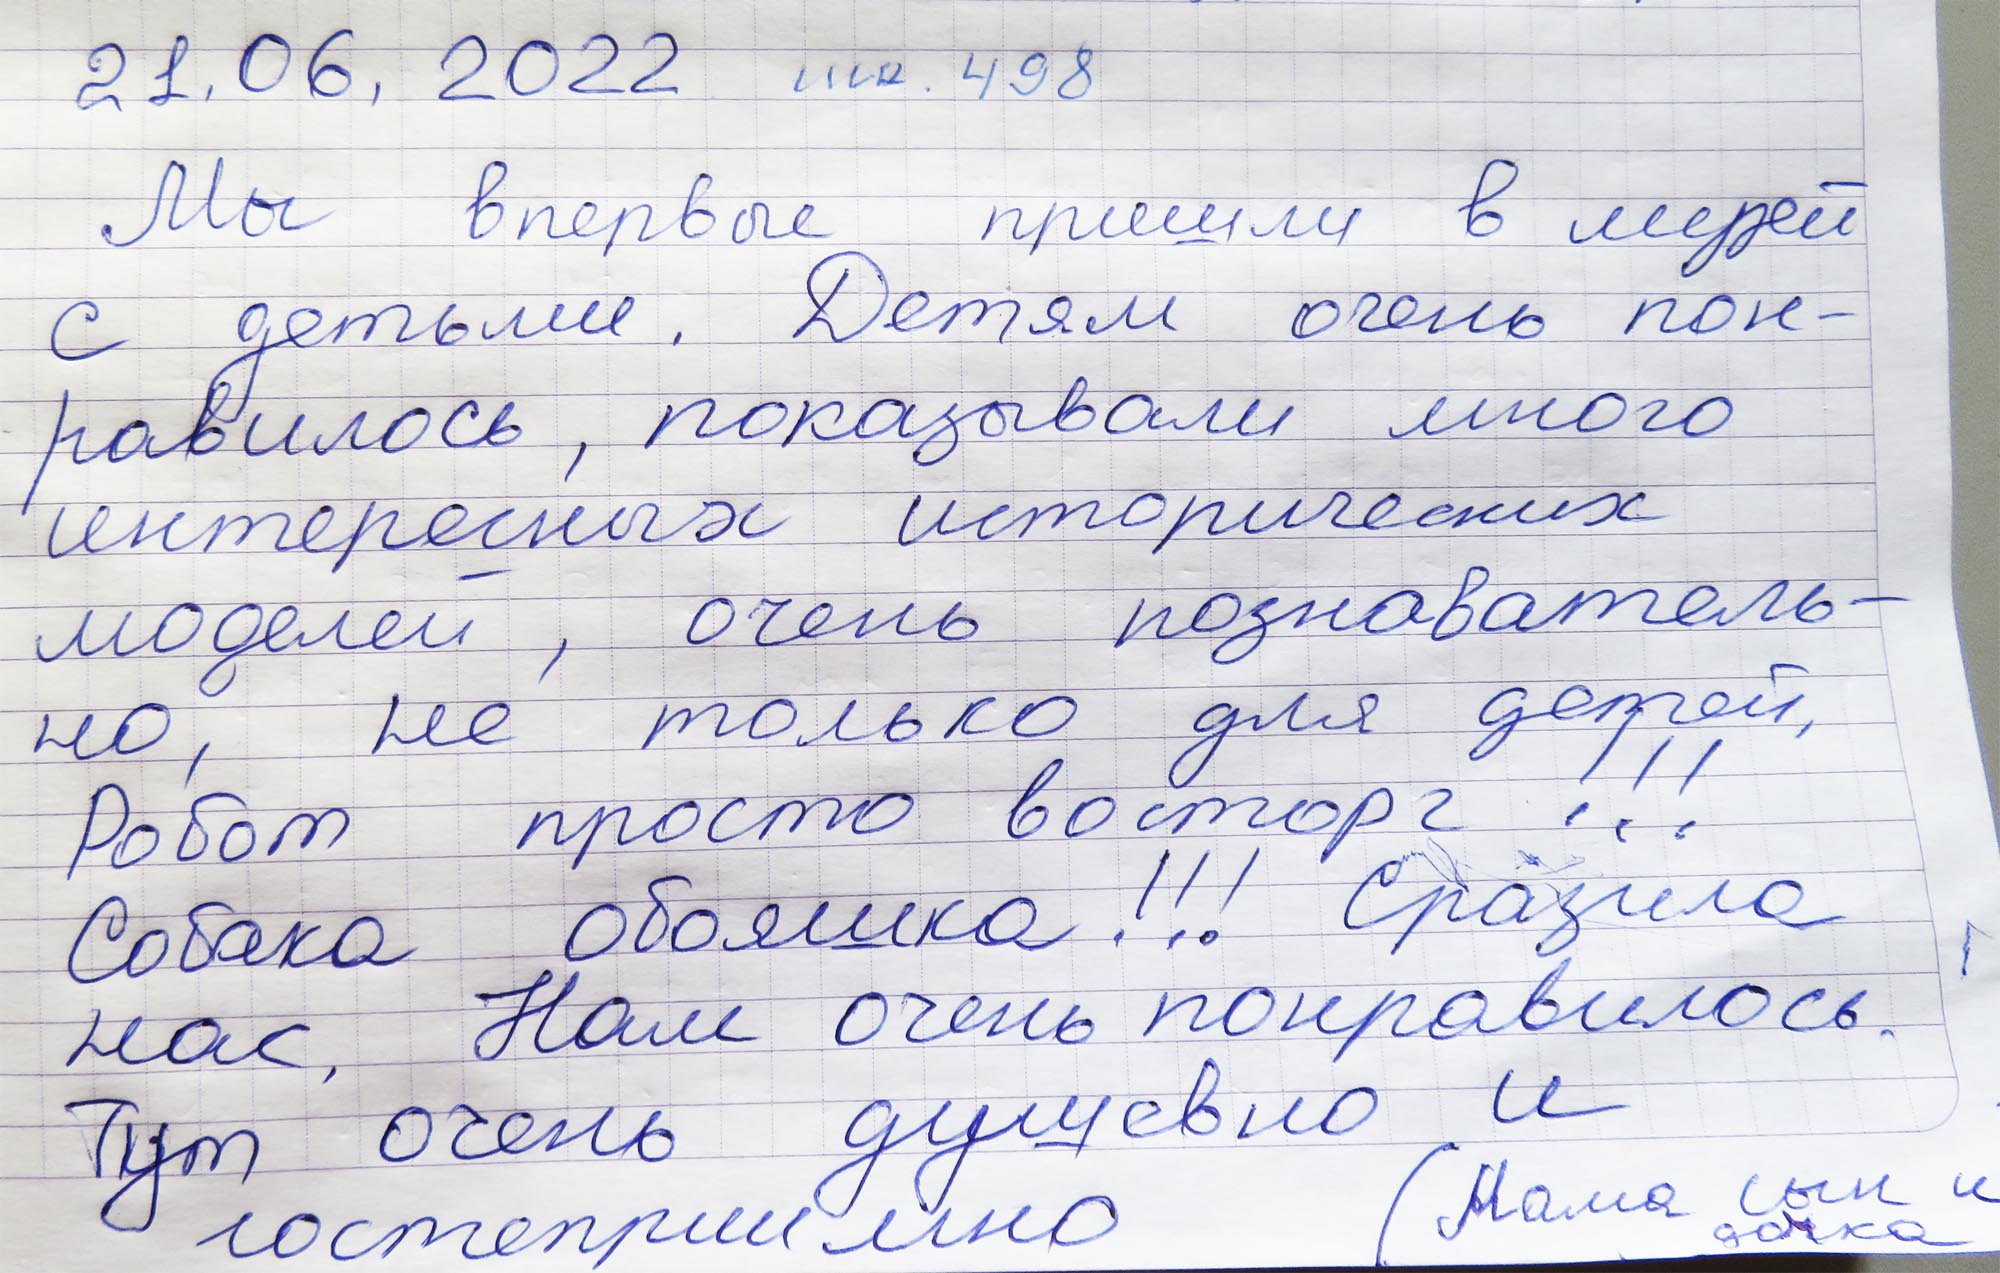 21.06.2022 шк. 498
Мы впервые пришли в музей
с детьми. Детям очень пон-
равилось, показывали много
интересных исторических
моделей, очень познаватель-
но, не только для детей,
Робот просто восторг!!!
Собака обояшка!!! Сразила
нас, Нам очень понравилось.
Тут очень душевно и
гостеприимно (Мама сын и
дочка